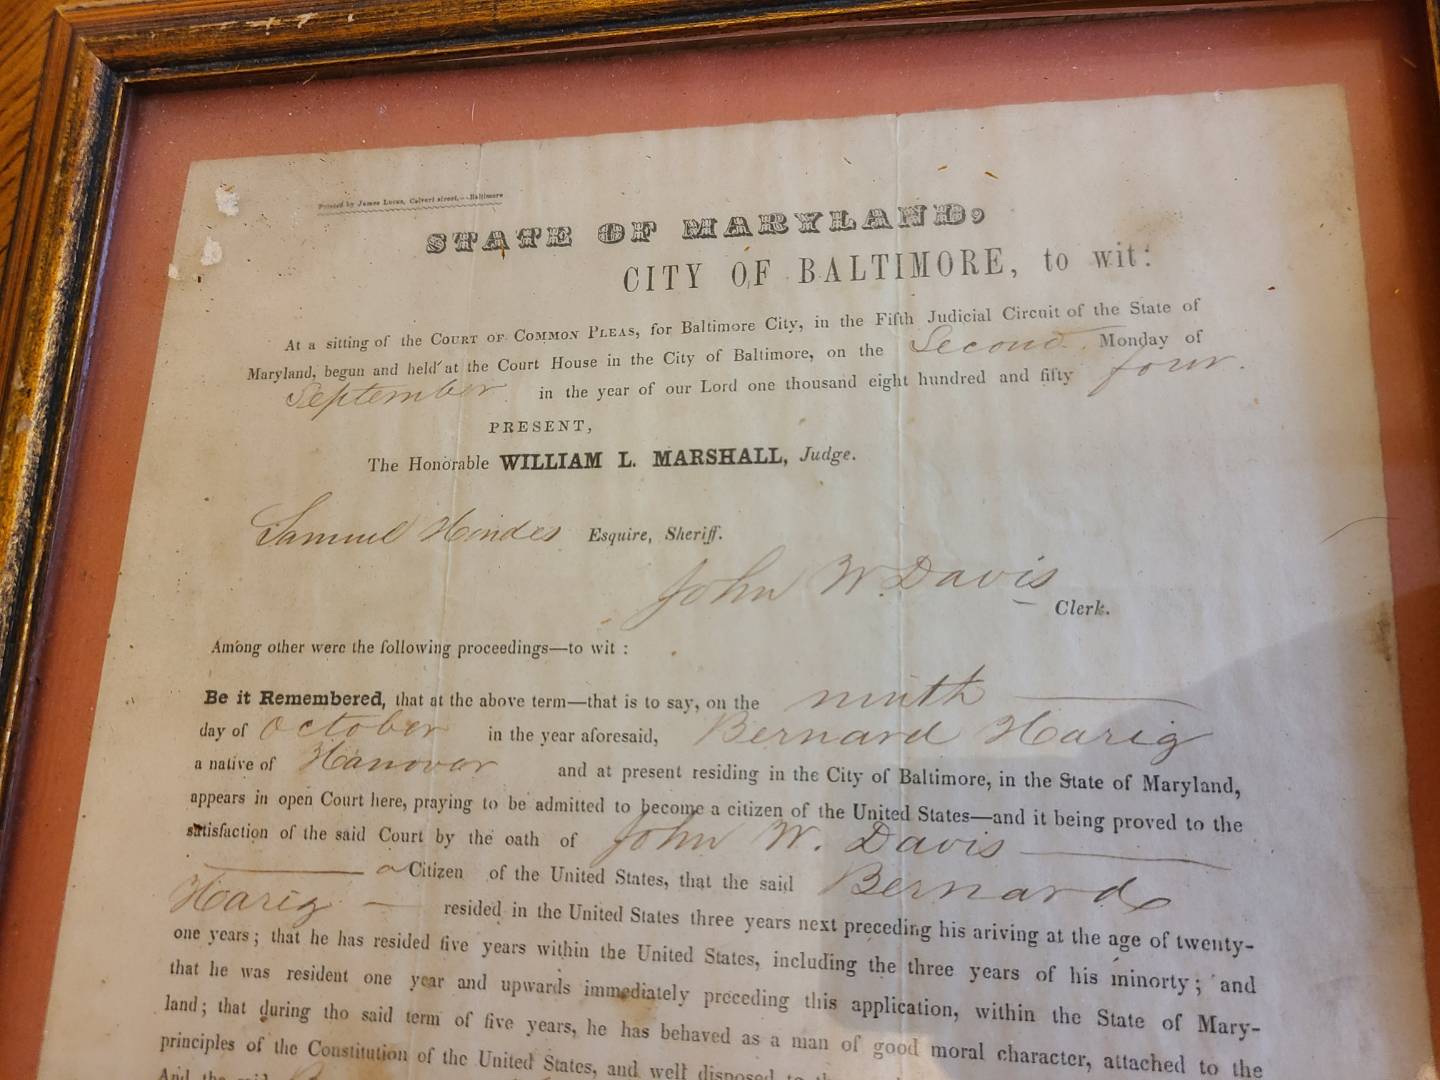 Printed by James Lucas, Calvert street,--Baltimore
STATE OF MARYLAND,
CITY OF BALTIMORE, to wit:
At a sitting of the COURT OF COMMON PLEAS, for Baltimore City, in the Fifth Judicial Circuit of the State of
Maryland, begun and held at the Court House in the City of Baltimore, on the Second Monday of
September in the year of our Lord one thousand eight hundred and fifty four.
PRESENT,
The Honorable WILLIAM L. MARSHALL, Judge.
Samuel Hindes Esquire, Sheriff.
John W. Davis
Clerk.
Among other were the following proceedings—to wit :
Be it Remembered, that at the above term—that is to say, on the ninth
day of October in the year aforesaid, Bernard Harig
a native of Hanover and at present residing in the City of Baltimore, in the State of Maryland,
appears in open Court here, praying to be admitted to become a citizen of the United States—and it being proved to the
satisfaction of the said Court by the oath of John W. Davis
a Citizen of the United States, that the said Bernard
Harig resided in the United States three years next preceding his ariving at the age of twenty-
one years; that he has resided five years within the United States, including the three years of his minorty; and
that he was resident one year and upwards immediately preceding this application, within the State of Mary-
land; that during tho said term of five years, he has behaved as a man of good moral character, attached to the
principles of the Constitution of the United States, and well disposed to
And the said